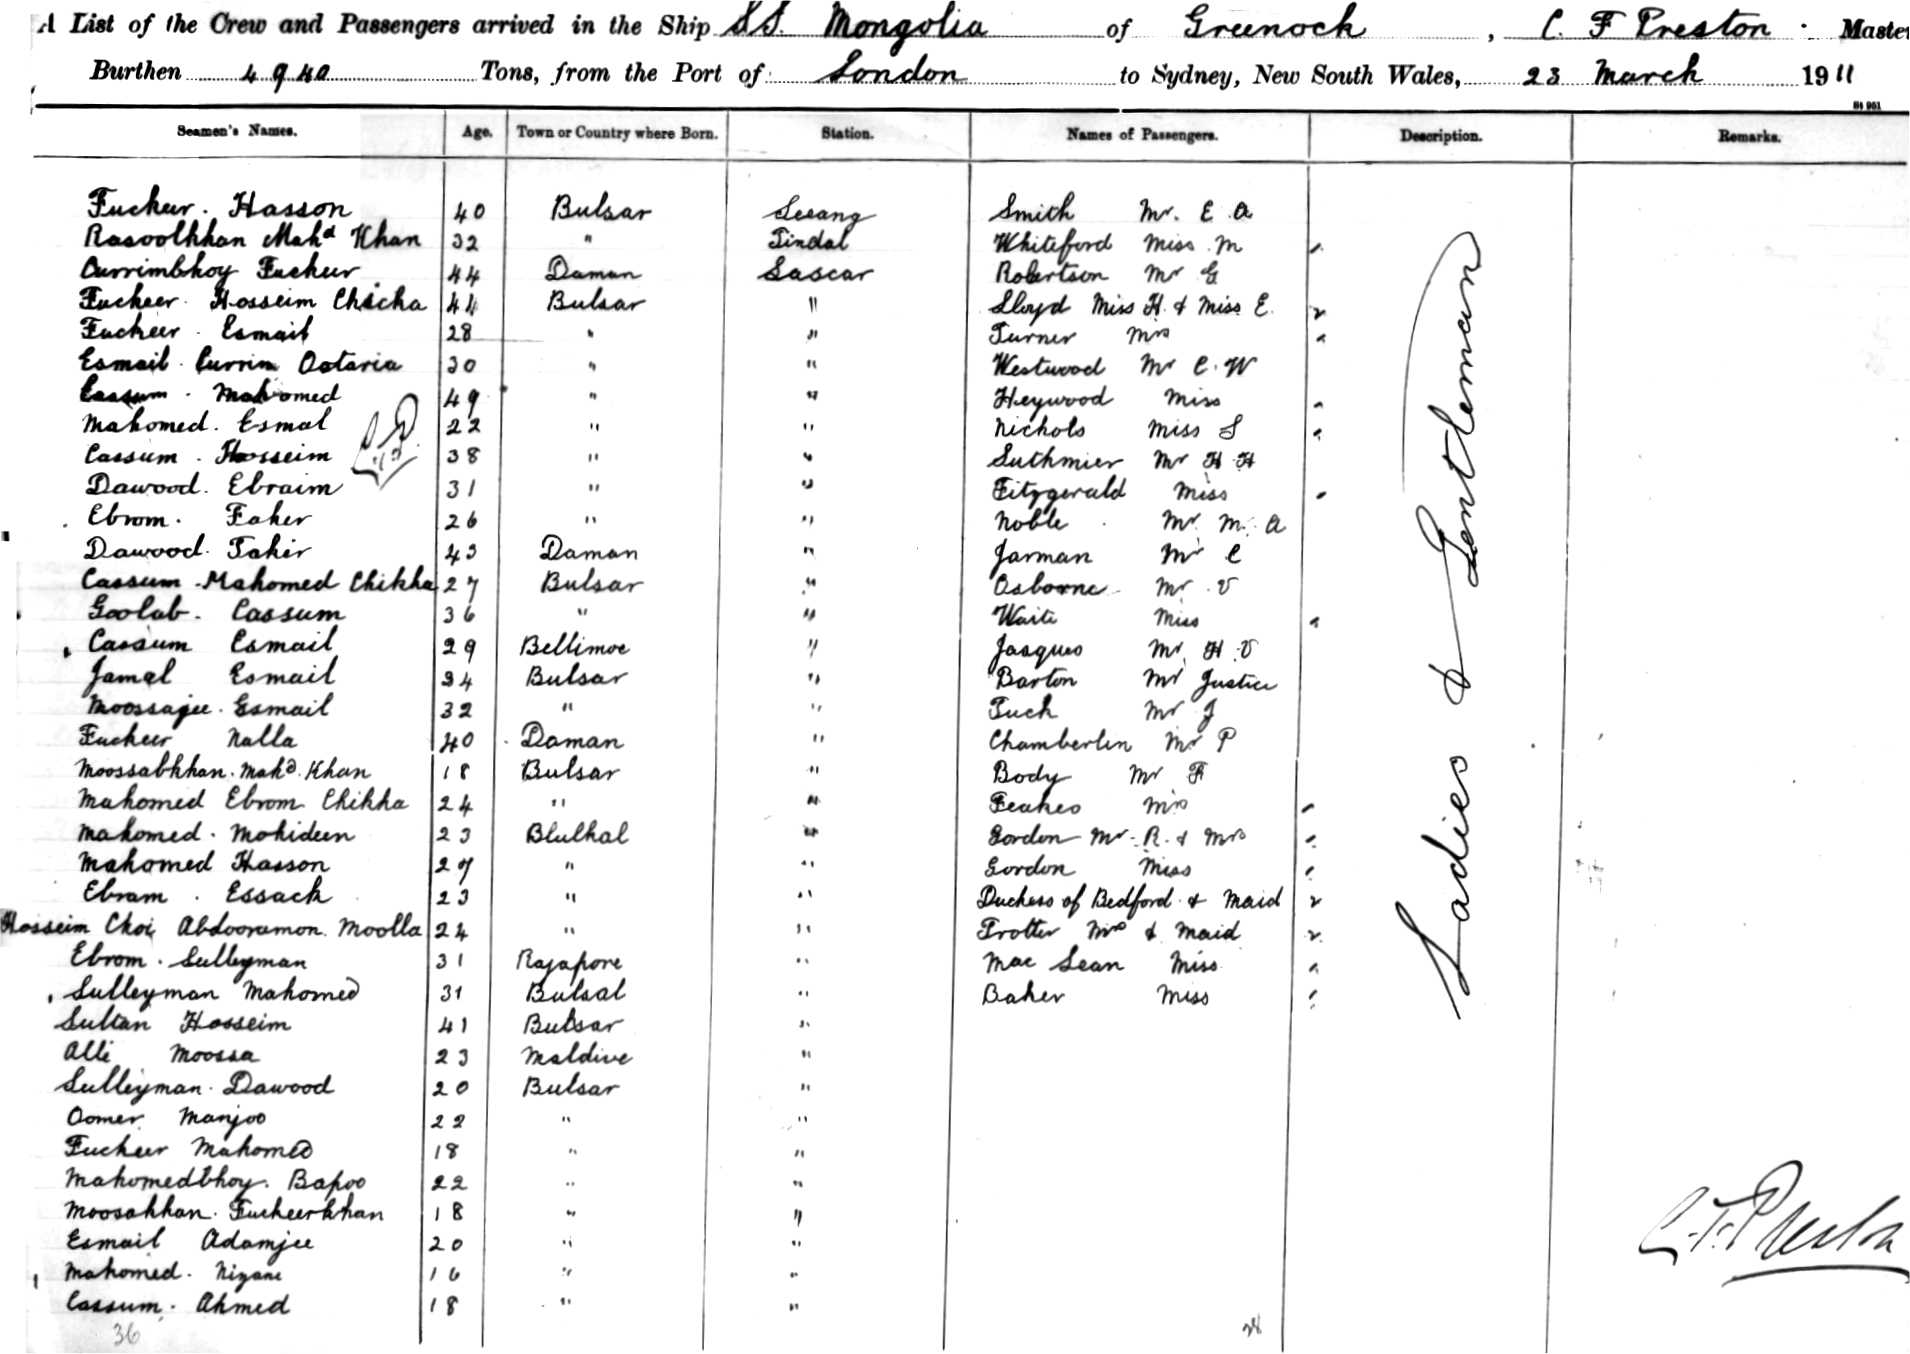 A List of the Crew and Passengers arrived in the Ship S.S. Mongolia of Greenock, C. F Preston Master
Burthen 4940 Tons, from the Port of London to Sydney, New South Wales, 23 March 1911
St 961
Seamen's Names. Age. Town or Country where Born. Station. Names of Passengers. Description. Remarks.
Fucheer. Hasson 40 Bulsar Serang Smith Mr. E A
Rasoolkhan Mahd Khan 32 " Tindal Whiteford Miss M
Currimbhoy Fucheer 44 Daman Lascar Robertson Mr G
Fucheer. Hosseim Chicha 44 Bulsar " Lloyd Miss H. & Miss E.
Fucheer. Esmail 28 " " Turner Mrs
Esmail. Currim Ostaria 30 " " Westwood Mr C. W
Cassum. Mahomed 49 " " Heywood Miss
Mahomed. Esmal 22 " " Nichols Miss S
Cassum. Hosseim 38 " " Suthmier Mr H H
Dawood. Ebraim 31 " " Fitzgerald Miss
Ebrom. Faker 26 " " Noble Mr. M. A
Dawood. Takir 43 Daman " Jarman Mr C
Cassum. Mahomed Chikha 27 Bulsar " Osborne Mr. V
Goolab. Cassum 36 " " Waite Miss
Cassum Esmail 29 Bellimoe " Jasques Mr. H. V
Jamal Esmail 34 Bulsar " Barton Mr Justice
Moossajee. Esmail 32 " " Tuck Mr J
Fucheer Nalla 40 Daman " Chamberlin Mr P
Moossabkhan. Mahd. Khan 18 Bulsar " Body Mr F
Mahomed Ebrom Chikha 24 " " Feakes Mrs
Mahomed. Mohideen 23 Blulkal " Gordon Mr. R. & Mrs
Mahomed Hasson 27 " " Gordon Miss
Ebram. Essack 23 " " Duchess of Bedford & Maid
Hosseim Choi Abdooramon. Moolla 24 " " Trotter Mrs & Maid
Ebrom. Sulleyman 31 Rajapore " Mac Lean Miss
Sulleyman Mahomed 31 Bulsal " Baker Miss
Sultan Hosseim 41 Bulsar "
Alli Moossa 23 Maldive "
Sulleyman. Dawood 20 Bulsar "
Oomer Manjoo 22 " "
Fucheer Mahomed 18 " "
Mahomedbhoy. Bapoo 22 " "
Moosakhan. Fucheerkhan 18 " "
Esmail Adamjee 20 " "
Mahomed. Nizam 16 " "
Cassum. Ahmed 18 " "
36 28
Ladies & Gentleman
C. F. Preston